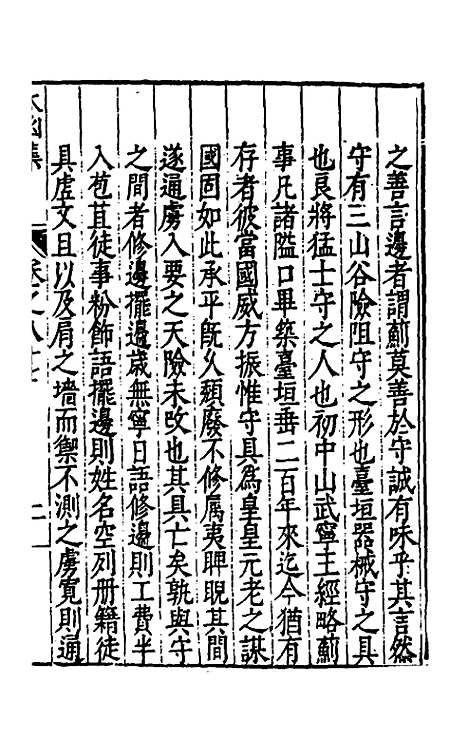 之善言邊者謂薊莫善於守誠有味乎其言然
守有三山谷險阻守之形也臺垣器械守之具
也良將猛士守之人也初中山武寧王經略薊
事凡諸隘口畢築臺垣垂二百年來迄今猶有
存者彼當國威方振惟守具為皇皇元老之謀
國固如此承平旣久頹廢不修属夷睥睨其間
遂通虜入要之天險未改也其具亡矣孰與守
之間者修邊擺邊歲無寧日語修邊則工費半
入苞苴徒事粉飾語擺邊則姓名空列册籍徒
具虛文且以及肩之墻而禦不測之虜寛則通
太函集 卷之八十 二